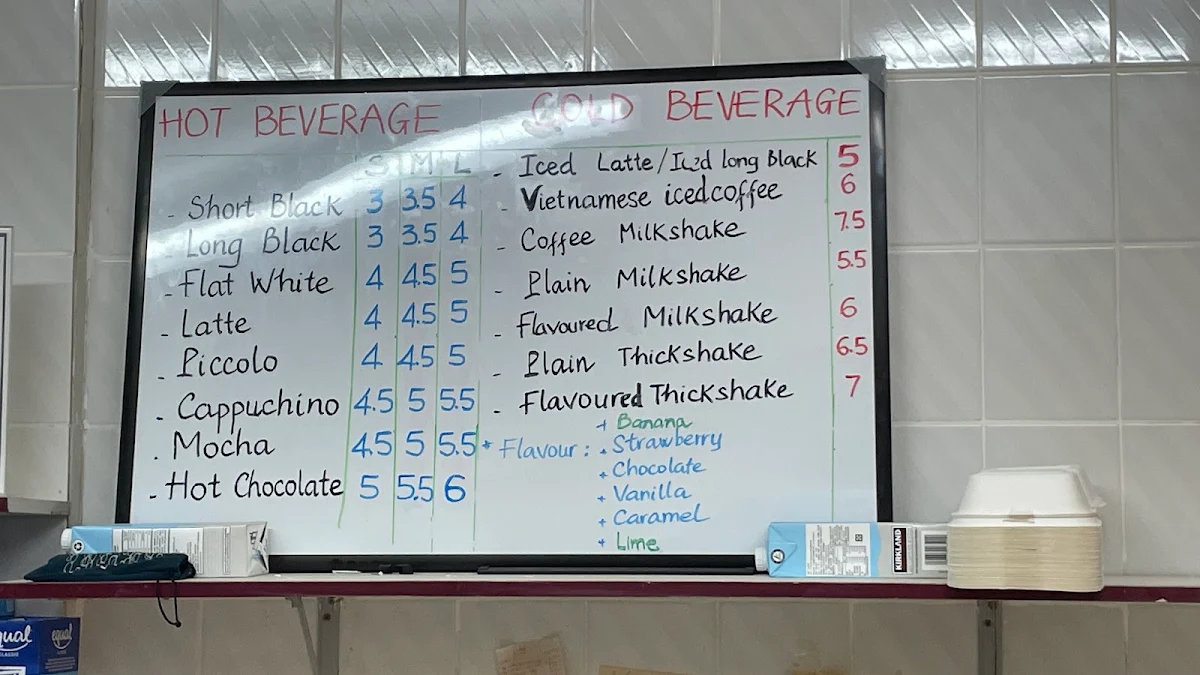 HOT BEVERAGE
S M L
- Short Black 3 3.5 4
- Long Black 3 3.5 4
- Flat White 4 4.5 5
- Latte 4 4.5 5
- Piccolo 4 4.5 5
- Cappuchino 4.5 5 5.5
. Mocha 4.5 5 5.5
- Hot Chocolate 5 5.5 6
COLD BEVERAGE
- Iced Latte/Iced long Black 5
- Vietnamese iced coffee 6
- Coffee Milkshake 7.5
- Plain Milkshake 5.5
- Flavoured Milkshake 6
- Plain Thickshake 6.5
- Flavoured Thickshake 7
+ Banana
* Flavour : + Strawberry
+ Chocolate
+ Vanilla
+ Caramel
+ Lime
KIRKLAND
equal
CLASSIC
equal